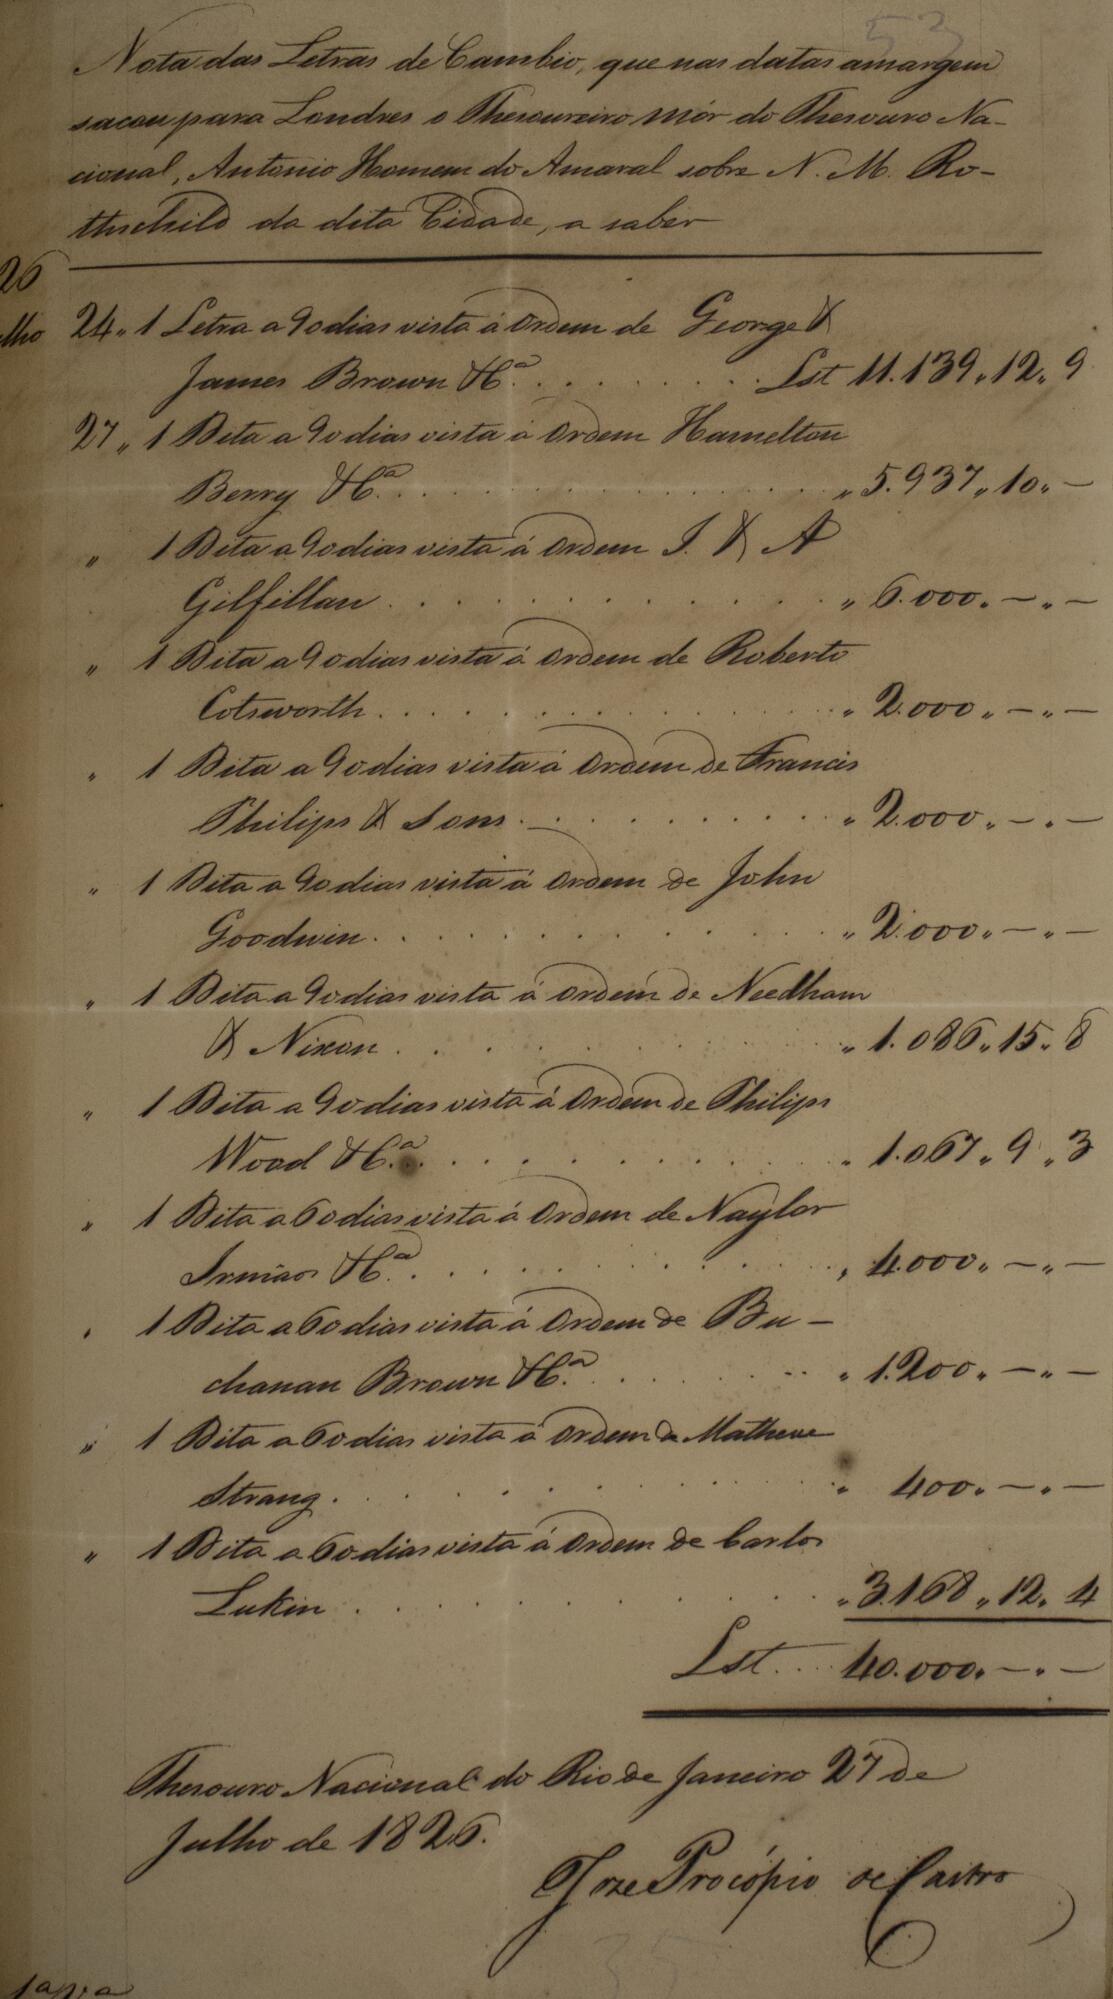 53
Nota das Letras de Cambio, que nas datas amargem
sacou para Londres o Thesoureiro mór do Thesouro Na-
cional, Antonio Homem do Amaral sobre N. M. Ro-
thschild da dita Cidade, a saber
26
lho 24 " 1 Letra a 90 dias vista á Ordem de George &
James Brown & Cª. . . . . . . . . . Lst 11.139 " 12 " 9
27 " 1 Dita a 90 dias vista á Ordem Hamelton
Berry & Cª. . . . . . . . . . . . . " 5.937 " 10 " —
" 1 Dita a 90 dias vista á Ordem J. & A
Gilfillan . . . . . . . . . . . . " 6.000 " — " —
" 1 Dita a 90 dias vista á Ordem de Roberto
Cotsworth . . . . . . . . . . . . " 2.000 " — " —
" 1 Dita a 90 dias vista á Ordem de Francis
Philips & Sons . . . . . . . . . . " 2.000 " — " —
" 1 Dita a 90 dias vista á Ordem de John
Goodwin . . . . . . . . . . . . " 2.000 " — " —
" 1 Dita a 90 dias vista á Ordem de Needham
& Nixon . . . . . . . . . . . . " 1.086 " 15 " 8
" 1 Dita a 90 dias vista á Ordem de Philips
Wood & Cª. . . . . . . . . . . . " 1.067 " 9 " 3
" 1 Dita a 60 dias vista á Ordem de Naylor
Irmãos & Cª. . . . . . . . . . . " 4.000 " — " —
" 1 Dita a 60 dias vista á Ordem de Bu-
chanan Brown & Cª. . . . . . . . . " 1.200 " — " —
" 1 Dita a 60 dias vista á Ordem de Mathew
Strang . . . . . . . . . . . . " 400 " — " —
" 1 Dita a 60 dias vista á Ordem de Carlos
Lukin . . . . . . . . . . . . " 3.168 " 12 " 4
Lst. . . . 40.000 " — " —
Thesouro Nacional do Rio de Janeiro 27 de
Julho de 1826.
Joze Procópio de Castro
35